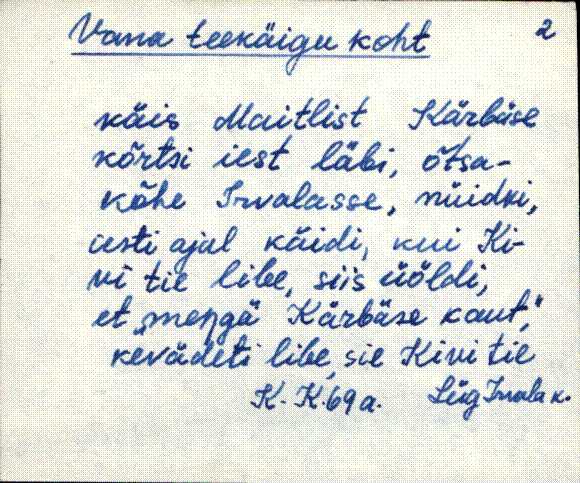 Vana teekäigu koht 2
käis Maitlist Kärbäse
kõrtsi iest läbi, õtsa-
kõhe Irvalasse, nüidki,
uesti ajal käidi, kui Ki-
vi tie libe, siis üöldi,
et „meŋgä Kärbäse kaut,”
kevädeti libe, sie Kivi tie
K. K. 69 a. Lüg Irvala k.